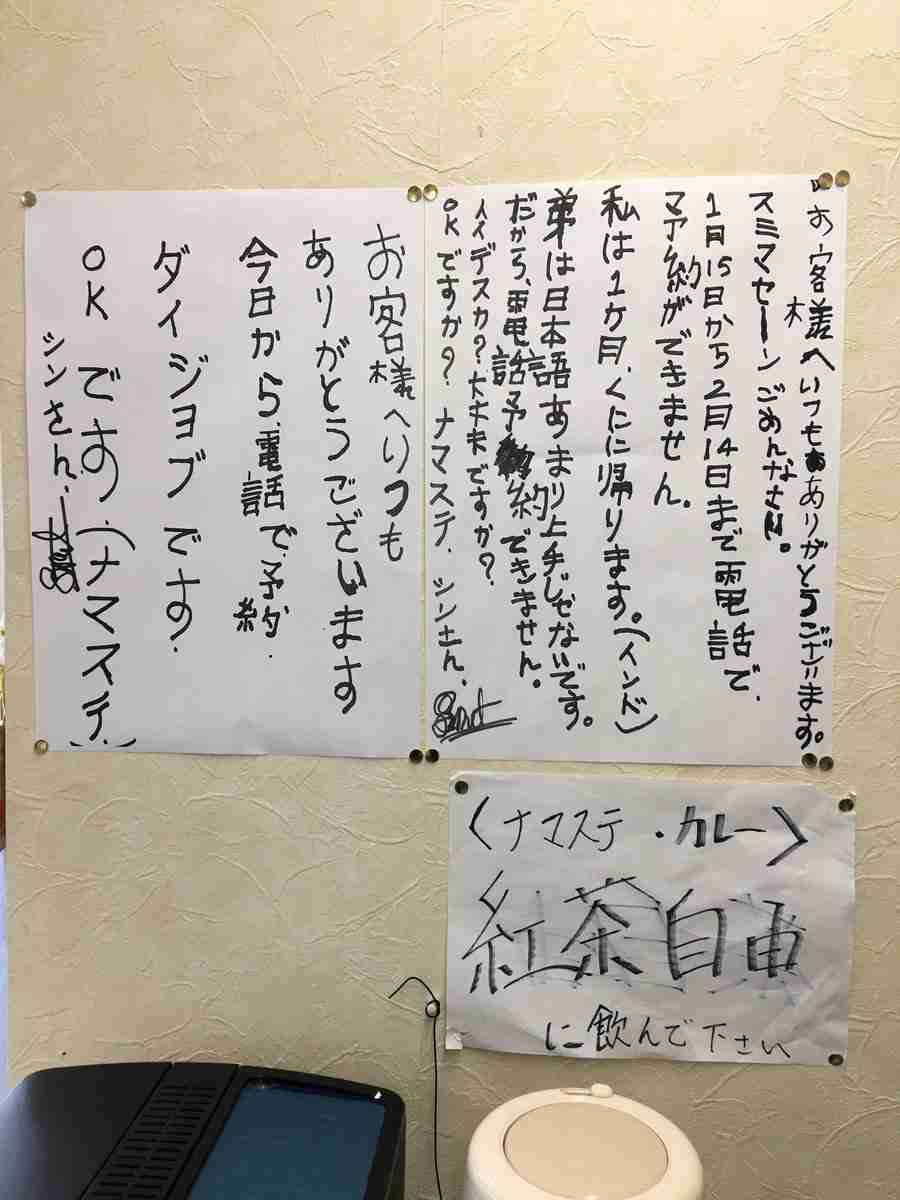 お客様へいつもありがとうございます。
スミマセーンごめんなさい。
1月15日から2月14日まで電話で、
予約ができません。
私は1ヶ月、くにに帰ります。(インド)
弟は日本語あまり上手じぜないです。
だから、電話予約できません。
イイデスカ?大丈夫ですか?
OKですか?ナマステ、シンさん、
お客様へいつも
ありがとうございます
今日から、電話で、予約、
ダイジョブです、
OKです、(ナマステ、)
シンさん、
〈ナマステ・カレー〉
紅茶自由
に飲んで下さい